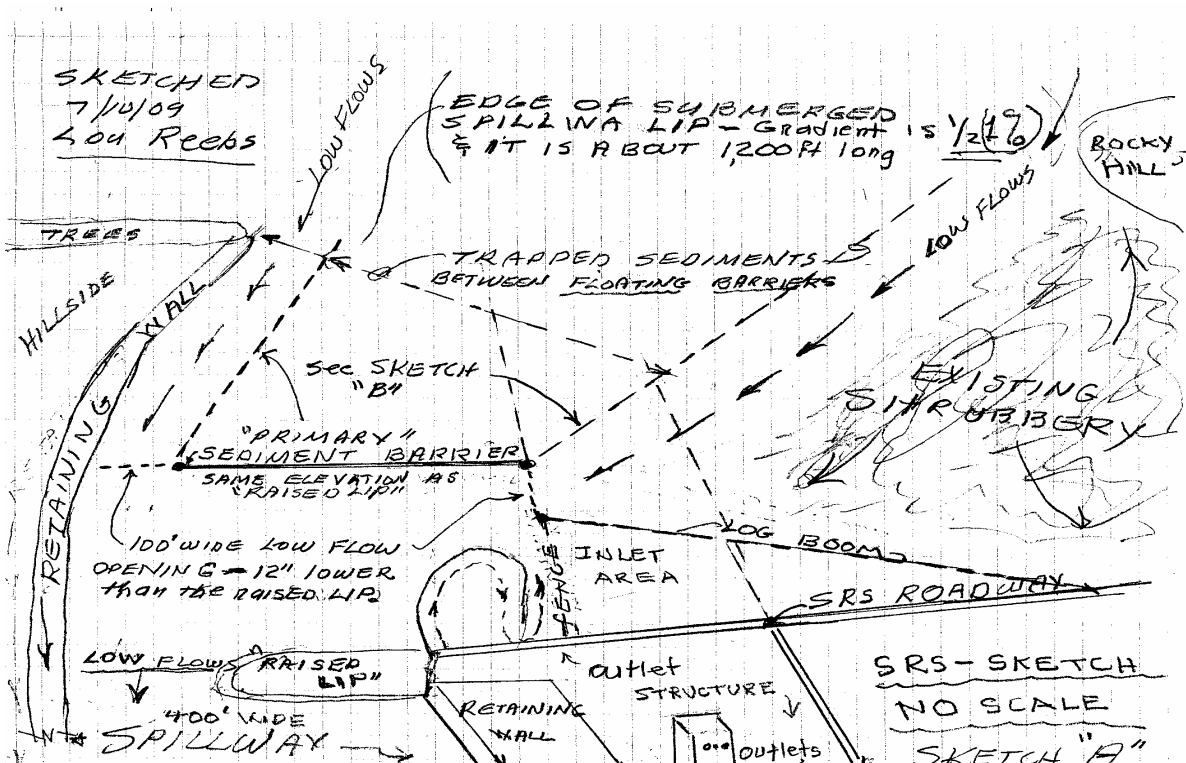 SKETCHED
7/10/09
Lou Reebs
LOW FLOWS
EDGE OF SUBMERGED
SPILLWA LIP - Gradient is 1/2 (1%)
& IT IS ABOUT 1,200 ft long
ROCKY
HILL
LOW FLOWS
TREES
TRAPPED SEDIMENTS
BETWEEN FLOATING BARRIERS
HILLSIDE
RETAINING WALL
see SKETCH
"B"
EXISTING
SHRUBBERY
"PRIMARY"
SEDIMENT BARRIER
SAME ELEVATION AS
"RAISED LIP"
100' WIDE LOW FLOW
OPENING - 12" lower
than the RAISED LIP
FENCE
INLET
AREA
LOG BOOM
SRS ROADWAY
LOW FLOWS
"RAISED
LIP"
400' WIDE
SPILLWAY
RETAINING
WALL
outlet
STRUCTURE
outlets
SRS - SKETCH
NO SCALE
SKETCH "A"